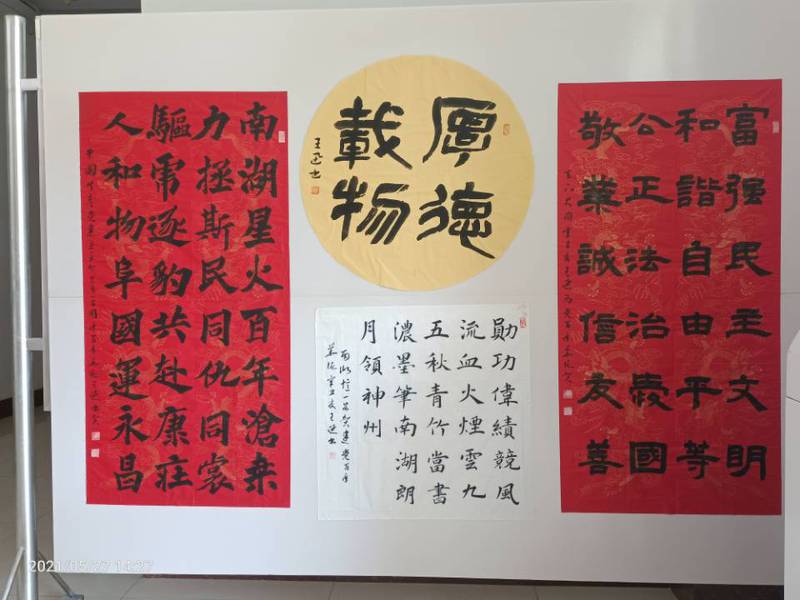 南湖星火百年滄桒
力拯斯民同仇同裳
驅虎逐豹共赴康莊
人和物阜國運永昌
厚德
載物
勋功偉績競風
流血火煙雲九
五秋青竹當書
濃墨筆南湖朗
月領神州
富强民主文明
和諧自由平等
公正法治愛國
敬業誠信友善
2021/05/27 14:27